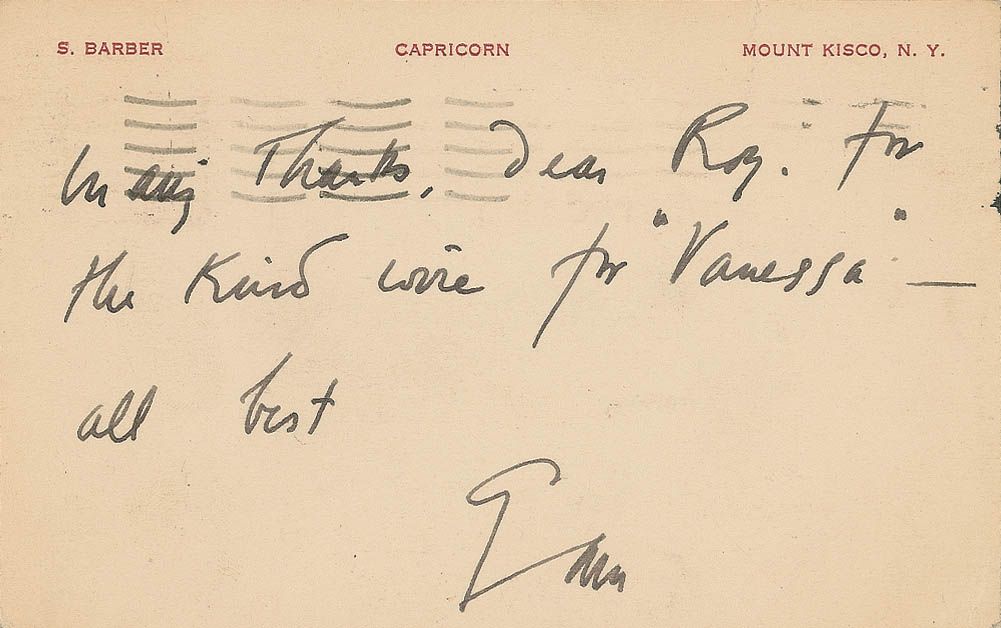 S. BARBER CAPRICORN MOUNT KISCO, N. Y.
Many Thanks, Dear Roy. for
the Kind wire for "Vanessa" —
all best
Sam